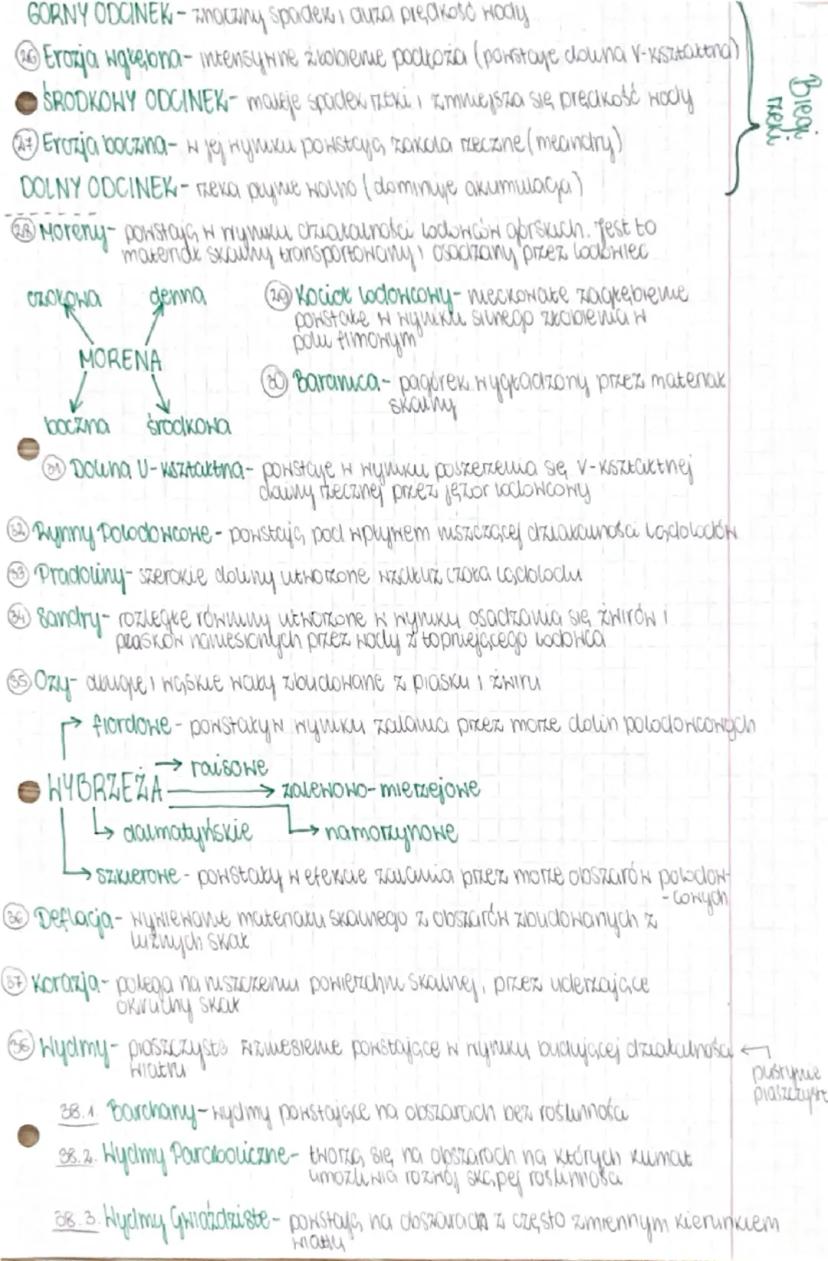 GÓRNY ODCINEK - znaczny spadek i duża prędkość wody
26 Erozja wgłębna - intensywne żłobienie podłoża (powstaje dolina V-kształtna)
ŚRODKOWY ODCINEK - maleje spadek rzeki i zmniejsza się prędkość wody
27 Erozja boczna - w jej wyniku powstają zakola rzeczne (meandry)
DOLNY ODCINEK - rzeka płynie wolno (dominuje akumulacja)
Biegi
rzeki
28 Moreny - powstają w wyniku działalności lodowców górskich. Jest to
materiał skalny transportowany i osadzany przez lodowiec
czołowa denna
MORENA
boczna środkowa
29 Kocioł lodowcowy - nieckowate zagłębienie
powstałe w wyniku silnego żłobienia w
polu firnowym
30 Baranica - pagórek wygładzony przez materiał
skalny
31 Dolina U-kształtna - powstaje w wyniku poszerzenia się V-kształtnej
doliny rzecznej przez jęzor lodowcowy
32 Rynny Polodowcowe - powstają pod wpływem niszczącej działalności lądolodów
33 Pradoliny - szerokie doliny utworzone wzdłuż czoła lądolodu
34 Sandry - rozległe równiny utworzone w wyniku osadzania się żwirów i
piasków naniesionych przez wody z topniejącego lodowca
35 Ozy - długie i wąskie wały zbudowane z piasku i żwiru
fiordowe - powstały w wyniku zalania przez morze dolin polodowcowych
riasowe
WYBRZEŻA zalewowo-mierzejowe
dalmatyńskie namorzynowe
szkierowe - powstały w efekcie zalania przez morze obszarów polodow-
-cowych
36 Deflacja - wywiewanie materiału skalnego z obszarów zbudowanych z
luźnych skał
37 Korazja - polega na niszczeniu powierzchni skalnej, przez uderzające
okruchy skał
38 Wydmy - piaszczyste wzniesienie powstające w wyniku budującej działalności
wiatru
pustynie
piaszczyste
38.1. Barchany - wydmy powstające na obszarach bez roślinności
38.2. Wydmy Paraboliczne - tworzą się na obszarach na których klimat
umożliwia rozwój skąpej roślinności
38.3. Wydmy Gwiaździste - powstają na obszarach z często zmiennym kierunkiem
wiatru